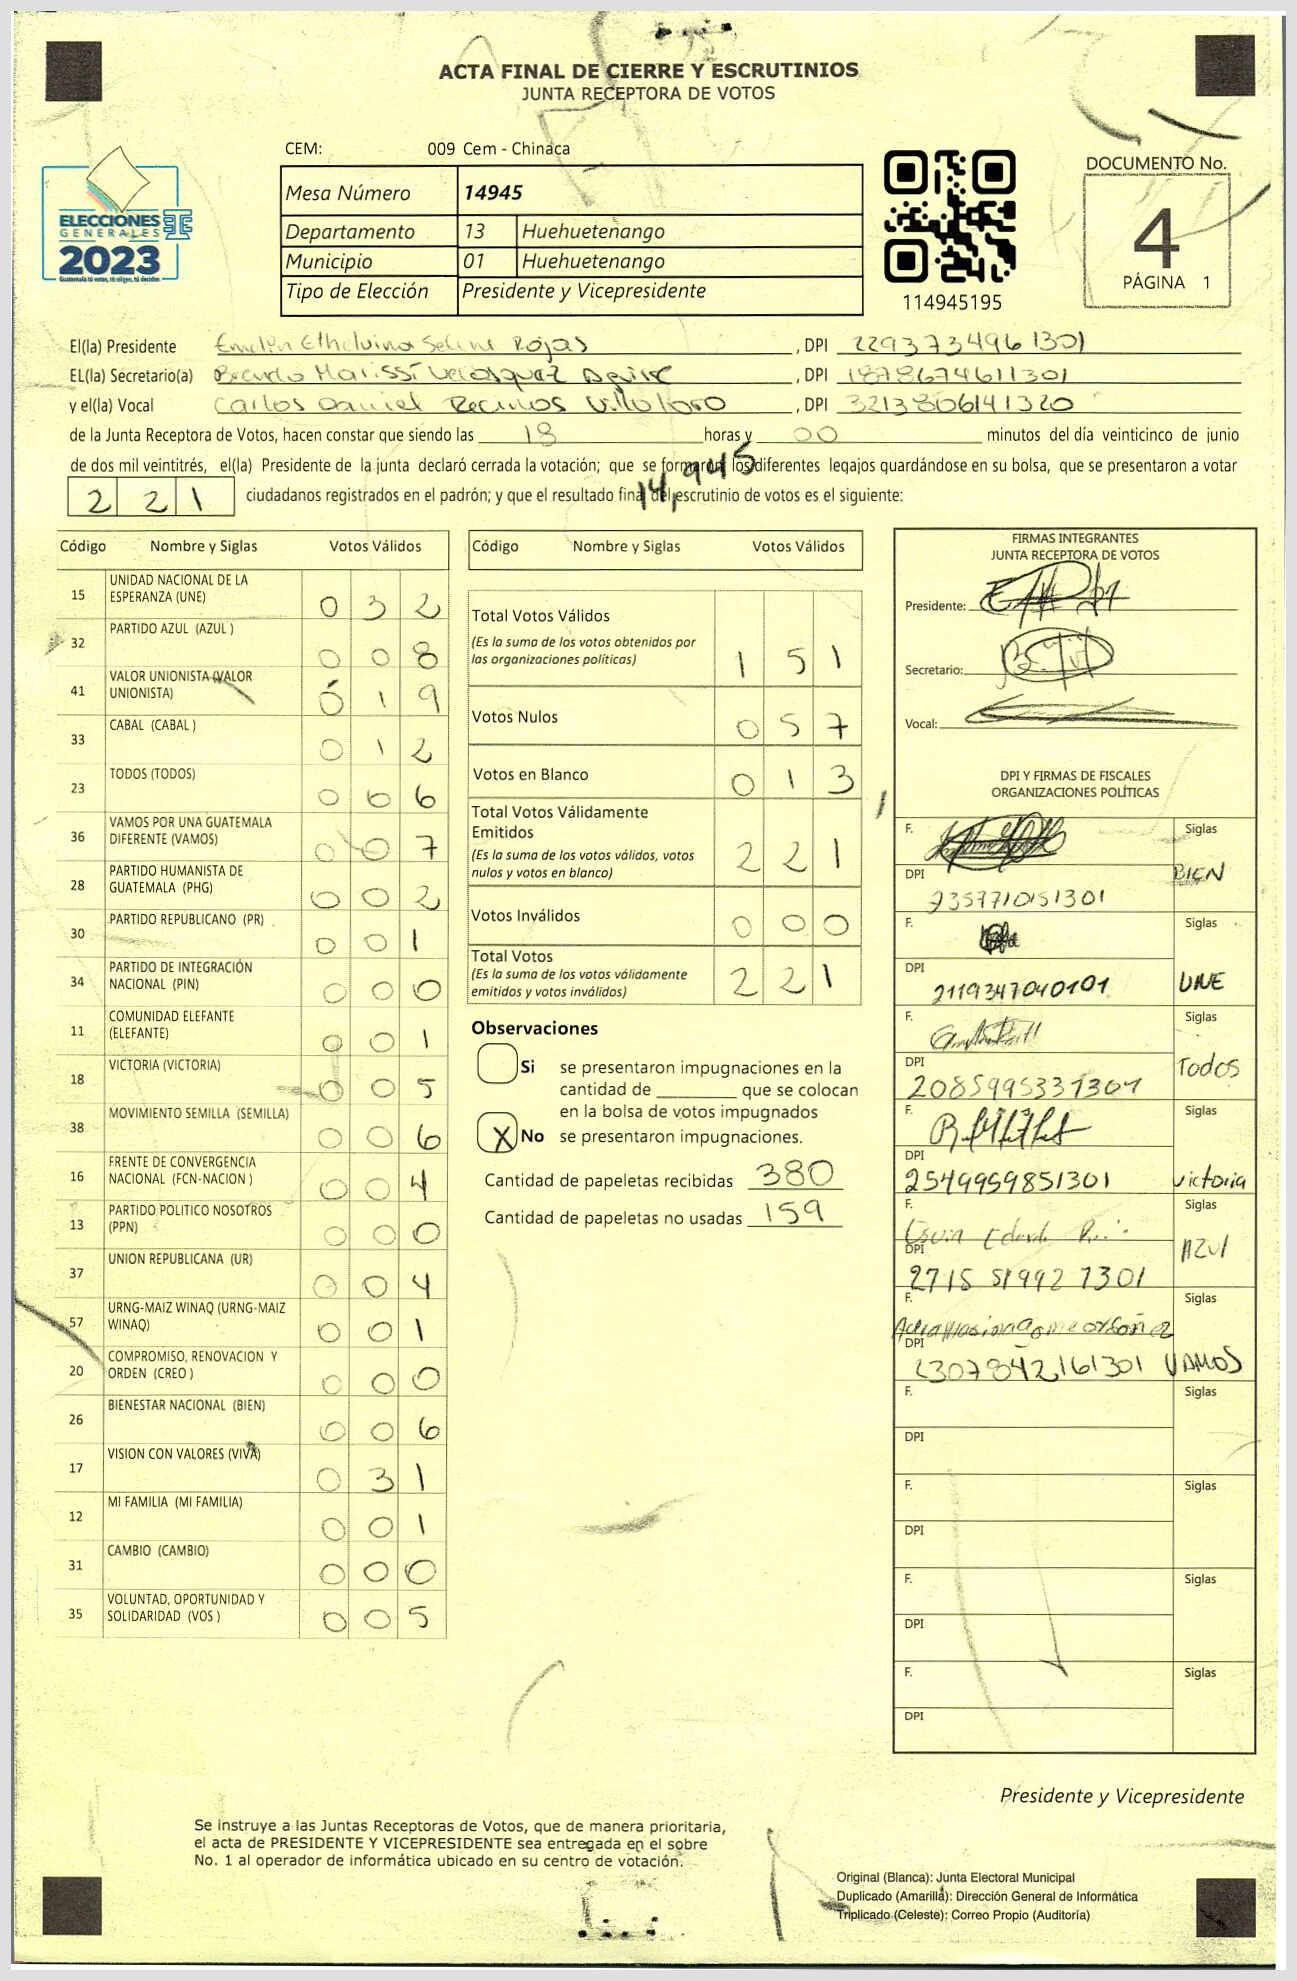 ACTA FINAL DE CIERRE Y ESCRUTINIOS
JUNTA RECEPTORA DE VOTOS
CEM: 009 Cem - Chinaca
ELECCIONES
GENERALES
2023
Guatemala tú votas, tú eliges, tú decides
Mesa Número 14945
Departamento 13 Huehuetenango
Municipio 01 Huehuetenango
Tipo de Elección Presidente y Vicepresidente
114945195
DOCUMENTO No.
4
PÁGINA 1
El(la) Presidente Rojas , DPI 2293734961301
EL(la) Secretario(a) , DPI 1878674611301
y el(la) Vocal Carlos Daniel Recinos Villatoro , DPI 3213806141320
de la Junta Receptora de Votos, hacen constar que siendo las 18 horas y 00 minutos del día veinticinco de junio
de dos mil veintitrés, el(la) Presidente de la junta declaró cerrada la votación; que se formaron los diferentes legajos guardándose en su bolsa, que se presentaron a votar
14,945
221 ciudadanos registrados en el padrón; y que el resultado final del escrutinio de votos es el siguiente:
Código Nombre y Siglas Votos Válidos
15 UNIDAD NACIONAL DE LA ESPERANZA (UNE) 032
32 PARTIDO AZUL (AZUL ) 008
41 VALOR UNIONISTA (VALOR UNIONISTA) 019
33 CABAL (CABAL ) 012
23 TODOS (TODOS) 006
36 VAMOS POR UNA GUATEMALA DIFERENTE (VAMOS) 007
28 PARTIDO HUMANISTA DE GUATEMALA (PHG) 002
30 PARTIDO REPUBLICANO (PR) 001
34 PARTIDO DE INTEGRACIÓN NACIONAL (PIN) 000
11 COMUNIDAD ELEFANTE (ELEFANTE) 001
18 VICTORIA (VICTORIA) 005
38 MOVIMIENTO SEMILLA (SEMILLA) 006
16 FRENTE DE CONVERGENCIA NACIONAL (FCN-NACION ) 004
13 PARTIDO POLITICO NOSOTROS (PPN) 000
37 UNION REPUBLICANA (UR) 004
57 URNG-MAIZ WINAQ (URNG-MAIZ WINAQ) 001
20 COMPROMISO, RENOVACION Y ORDEN (CREO ) 000
26 BIENESTAR NACIONAL (BIEN) 006
17 VISION CON VALORES (VIVA) 031
12 MI FAMILIA (MI FAMILIA) 001
31 CAMBIO (CAMBIO) 000
35 VOLUNTAD, OPORTUNIDAD Y SOLIDARIDAD (VOS ) 005
Código Nombre y Siglas Votos Válidos
Total Votos Válidos
(Es la suma de los votos obtenidos por
las organizaciones políticas) 151
Votos Nulos 057
Votos en Blanco 013
Total Votos Válidamente
Emitidos
(Es la suma de los votos válidos, votos
nulos y votos en blanco) 221
Votos Inválidos 000
Total Votos
(Es la suma de los votos válidamente
emitidos y votos inválidos) 221
Observaciones
Si se presentaron impugnaciones en la
cantidad de ________ que se colocan
en la bolsa de votos impugnados
X No se presentaron impugnaciones.
Cantidad de papeletas recibidas 380
Cantidad de papeletas no usadas 159
FIRMAS INTEGRANTES
JUNTA RECEPTORA DE VOTOS
Presidente:
Secretario:
Vocal:
DPI Y FIRMAS DE FISCALES
ORGANIZACIONES POLÍTICAS
F. Siglas
DPI BIEN
F. Siglas
DPI
2119347040101 UNE
F. Siglas
DPI Todos
2085995331301
F. Siglas
DPI
2549959851301 victoria
F. Siglas
DPI AZUl
2715 51992 1301
F. Siglas
DPI
2307842161301 VAMOS
F. Siglas
DPI
F. Siglas
DPI
F. Siglas
DPI
F. Siglas
DPI
Presidente y Vicepresidente
Se instruye a las Juntas Receptoras de Votos, que de manera prioritaria,
el acta de PRESIDENTE Y VICEPRESIDENTE sea entregada en el sobre
No. 1 al operador de informática ubicado en su centro de votación.
Original (Blanca): Junta Electoral Municipal
Duplicado (Amarilla): Dirección General de Informática
Triplicado (Celeste): Correo Propio (Auditoría)